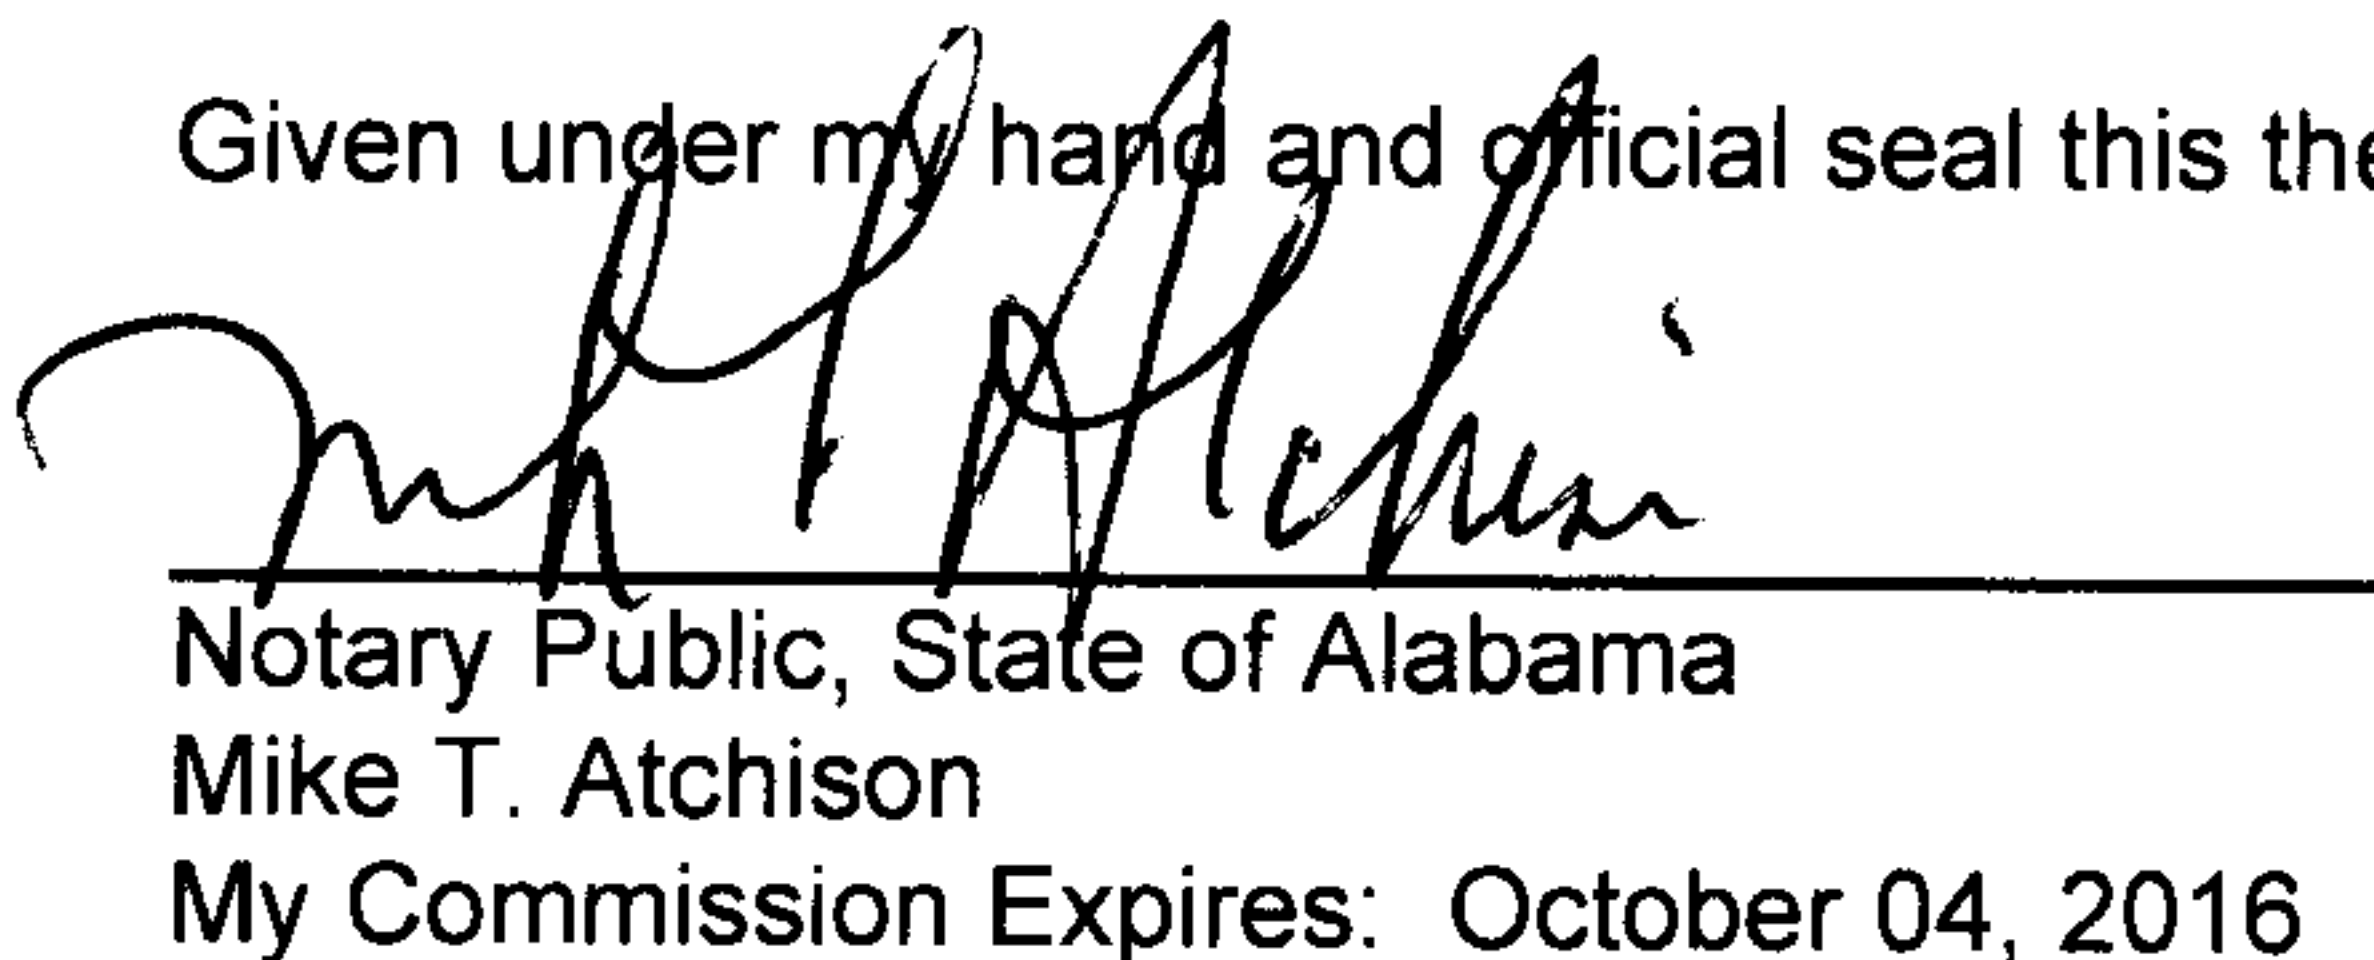 Given under my hand and official seal this the
Mike T. Atchison
Notary Public, State of Alabama
Mike T. Atchison
My Commission Expires: October 04, 2016